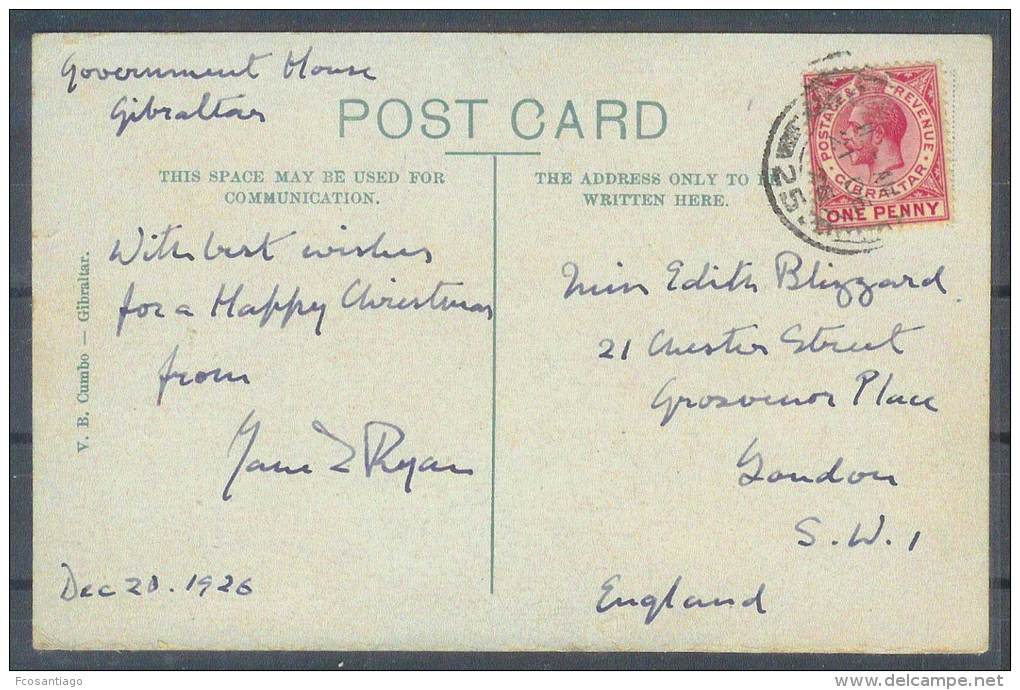 Government House
Gibraltar
POST CARD
THIS SPACE MAY BE USED FOR
COMMUNICATION.
THE ADDRESS ONLY TO BE
WRITTEN HERE.
POSTAGE & REVENUE
GIBRALTAR
ONE PENNY
25
With best wishes
for a Happy Christmas
from
Jane Z Ryan
Dec 20. 1926
V. B. Cumbo — Gibraltar.
Miss Edith Blizzard
21 Chester Street
Grosvenor Place
London
S.W.1
England
Fcosantiago
www.delcampe.net